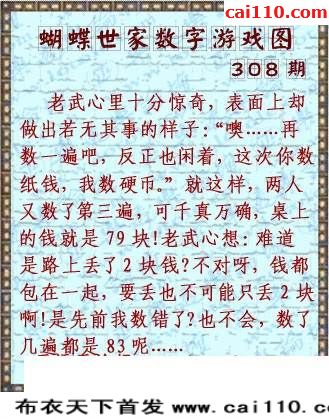 cai110.com
蝴蝶世家数字游戏图
308 期
老武心里十分惊奇，表面上却
做出若无其事的样子：“噢……再
数一遍吧，反正也闲着，这次你数
纸钱，我数硬币。”就这样，两人
又数了第三遍，可千真万确，桌上
的钱就是 79 块!老武心想: 难道
是路上丢了 2 块钱?不对呀，钱都
包在一起，要丢也不可能只丢 2 块
啊!是先前我数错了?也不会，数了
几遍都是 83 呢……
布衣天下首发 www.cai110.c